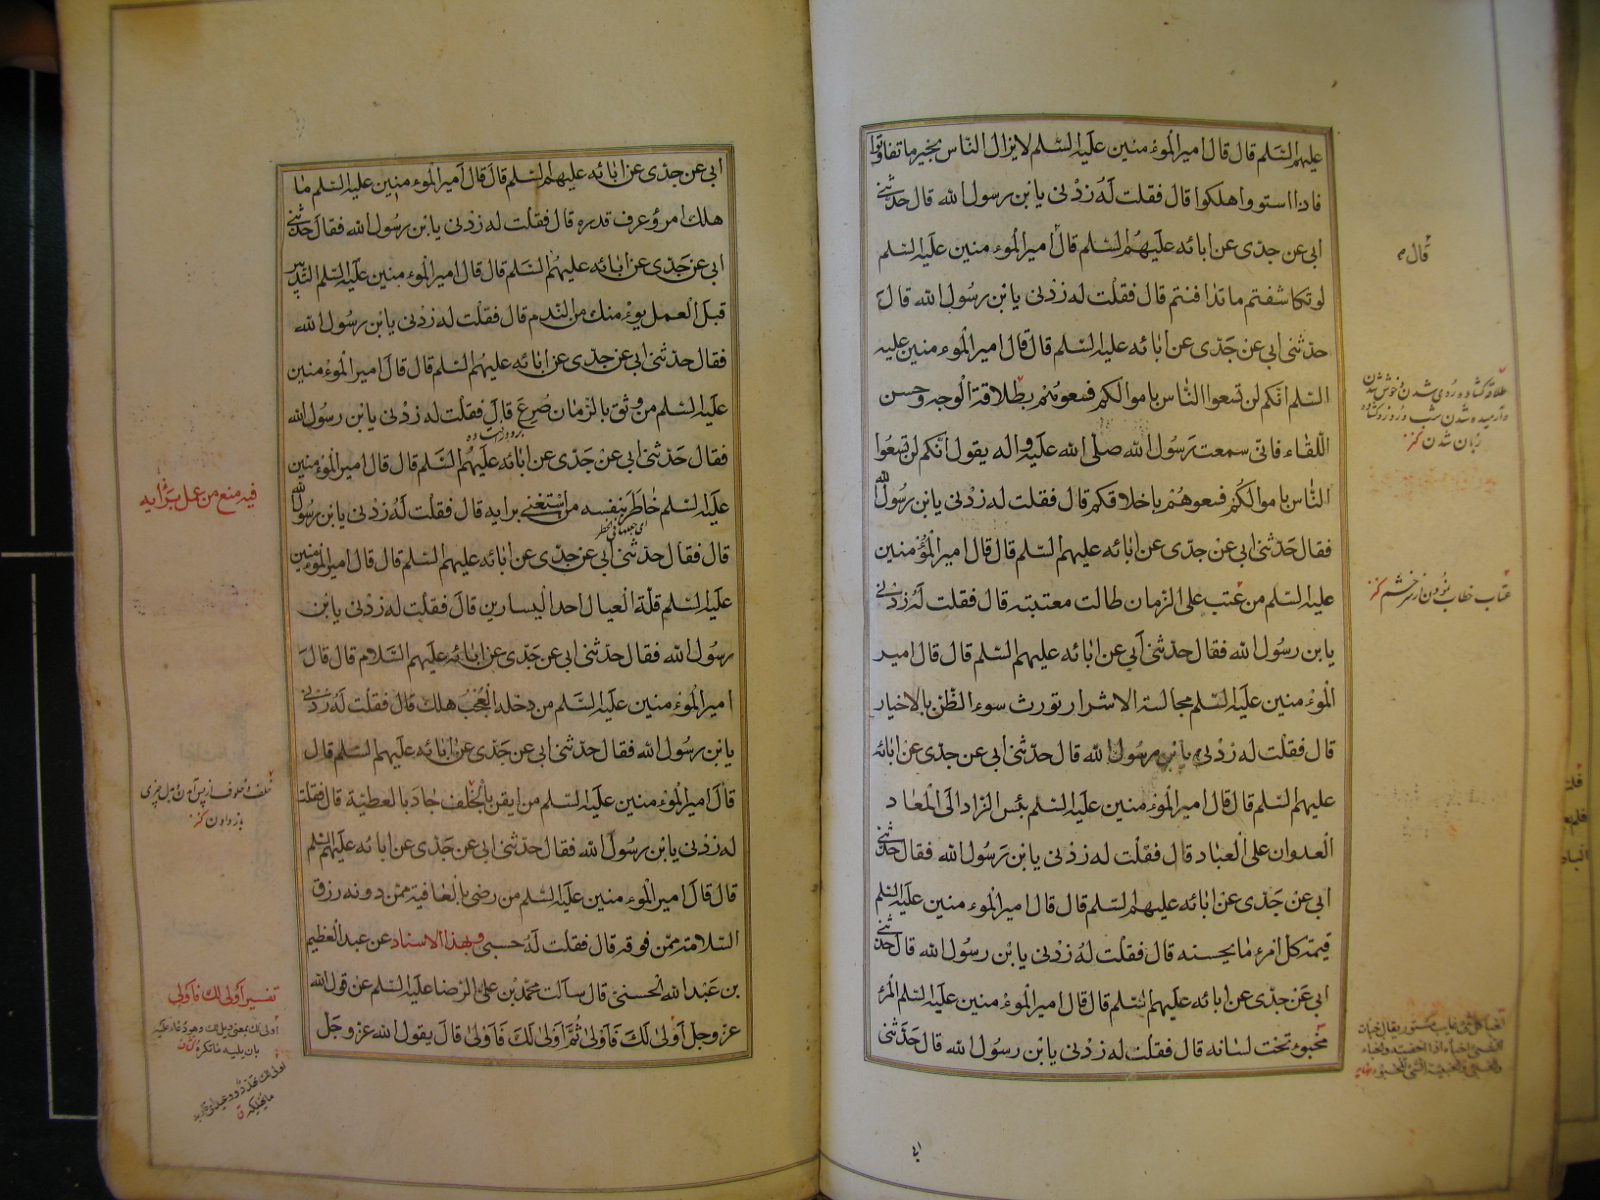 عليهم السّلم قال قال امير الموءمنين عليه السّلم لا يزال النّاس بخير ما تفاوتوا
فاذا استووا هلكوا قال فقلت له زدنى يا بن رسول الله قال حدّثنى
ابى عن جدّى عن ابائه عليهم السّلم قال امير الموءمنين عليه السّلم
لو تكاشفتم ما تدافنتم قال فقلت له زدنى يا بن رسول الله قال
حدّثنى ابى عن جدّى عن ابائه عليه السّلم قال قال امير الموءمنين عليه
السّلم انّكم لن تسعوا النّاس باموالكم فسعوهم بطلاقة الوجه وحسن
اللّقاء فانّى سمعت رسول الله صلّى الله عليه واله يقول انّكم لن تسعوا
النّاس باموالكم فسعوهم باخلاقكم قال فقلت له زدنى يا بن رسول الله
فقال حدّثنى ابى عن جدّى عن ابائه عليهم السّلم قال قال امير المؤمنين
عليه السّلم من عتب على الزمان طالت معتبته قال فقلت له زدنى
يا بن رسول الله فقال حدّثنى ابى عن ابائه عليهم السّلم قال قال امير
الموءمنين عليه السّلم مجالسة الاشرار تورث سوء الظّن بالاخيار
قال فقلت له زدنى يا بن رسول الله قال حدّثنى ابى عن جدّى عن ابائه
عليهم السّلم قال قال امير الموءمنين عليه السّلم بئس الزاد الى المعاد
العدوان على العباد قال فقلت له زدنى يا بن رسول الله فقال حدّثنى
ابى عن جدّى عن ابائه عليهم السّلم قال قال امير الموءمنين عليه السّلم
قيمة كل امرء ما يحسنه قال فقلت له زدنى يا بن رسول الله قال حدّثنى
ابى عن جدّى عن ابائه عليهم السّلم قال قال امير الموءمنين عليه السّلم المرء
مخبوء تحت لسانه قال فقلت له زدنى يا بن رسول الله قال حدّثنى
قال
عتاب خطاب
ابى
ابى عن جدّى عن ابائه عليهم السّلم قال قال امير الموءمنين عليه السّلم ما
هلك امرؤ عرف قدره قال فقلت له زدنى يا بن رسول الله فقال حدّثنى
ابى عن جدّى عن ابائه عليهم السّلم قال قال امير الموءمنين عليه السّلم التّدبير
قبل العمل يوءمنك من النّدم قال فقلت له زدنى يا بن رسول الله
فقال حدّثنى ابى عن جدّى عن ابائه عليهم السّلم قال قال امير الموءمنين
عليه السّلم من وثق بالزمان صرع قال فقلت له زدنى يا بن رسول الله
فقال حدّثنى ابى عن جدّى عن ابائه عليهم السّلم قال قال امير الموءمنين
عليه السّلم خاطر بنفسه من استغنى برايه قال فقلت له زدنى يا بن رسول الله
قال فقال حدّثنى ابى عن جدّى عن ابائه عليهم السّلم قال قال امير الموءمنين
عليه السّلم قلّة العيال احد اليسارين قال فقلت له زدنى يا بن
رسول الله فقال حدّثنى ابى عن جدّى عن ابائه عليهم السّلام قال قال
امير الموءمنين عليه السّلم من دخله العجب هلك قال فقلت له زدنى
يا بن رسول الله فقال حدّثنى ابى عن جدّى عن ابائه عليهم السّلم قال
قال امير الموءمنين عليه السّلم من ايقن بالخلف جاد بالعطية قال فقلت
له زدنى يا بن رسول الله فقال حدّثنى ابى عن جدّى عن ابائه عليهم السّلم
قال قال امير الموءمنين عليه السّلم من رضى بالعافية ممّن دونه رزق
السّلامة ممّن فوقه قال فقلت له حسبى وبهذا الاسناد عن عبد العظيم
بن عبد الله الحسنىّ قال سالت محمّد بن على الرّضا عليه السّلم عن قول الله
عز وجل اولى لك فاولى ثمّ اولى لك فاولى قال يقول الله عز وجل
فيه منع من عمل برأيه
تفسير اولى لك فاولى